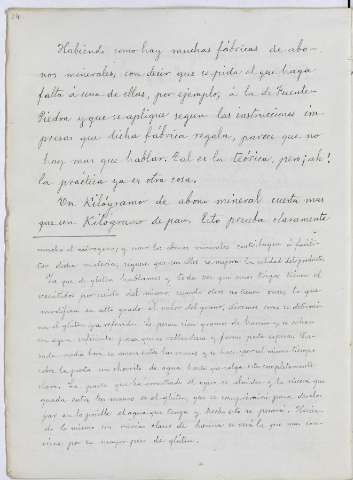 24
Habiendo como hay muchas fábricas de abo-
nos minerales, con decir que se pida el que haga
falta á una de ellas, por ejemplo, á la de Fuente-
Piedra y que se aplique segun las instrucciones im-
presas que dicha fábrica regala, parece que no
hay mas que hablar. Tal es la teórica, pero ¡ah!
la práctica ya es otra cosa.
Un Kilógramo de abono mineral cuesta mas
que un Kilógramo de pan. Esto prueba claramente
mucho el nitrógeno, y como los abonos minerales contribuyen á
dicha materia, resulta que con ellos se mejora la calidad del
Ya que de gluten hablamos y toda vez que unos trigos tienen el
por del mismo, cuando otros no tienen
en alto grado el valor del grano, diremos como se determi-
na el gluten Se pesan cien gramos de harina y se echan
en agua, para que se y forme pasta espesa.
bien se entre las manos y se hace caer al mismo tiempo
sobre la pasta un chorrito de agua hasta que salga completamente
clara. La parte que ha arrastrado el agua es almidon y la viscosa que
queda entre las manos es el gluten, que se comprimirá para
en lo posible el agua que tenga y hecho esto se pesará.
lo mismo con varias clases de harina se verá la que mas con-
viene por su mayor peso de gluten.